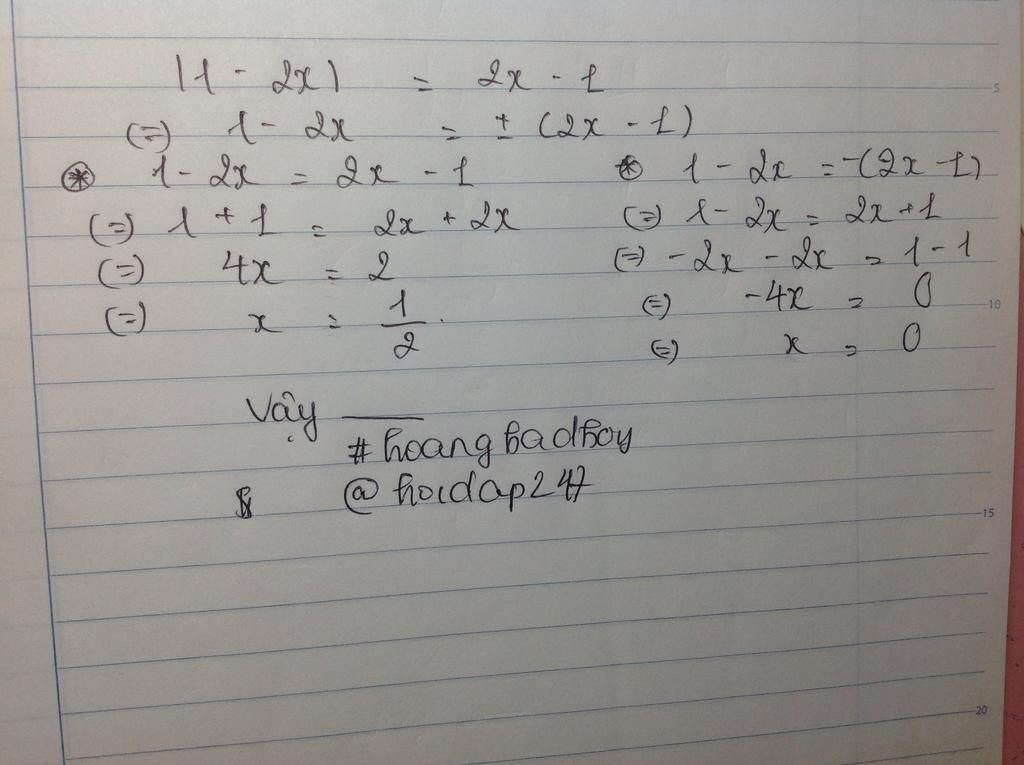 |1 - 2x| = 2x - 1
(=) 1 - 2x = ± (2x - 1)
⊛ 1 - 2x = 2x - 1
(=) 1 + 1 = 2x + 2x
(=) 4x = 2
(=) x = 1/2.
* 1 - 2x = -(2x - 1)
(=) 1 - 2x = 2x + 1
(=) -2x - 2x = 1 - 1
(=) -4x = 0
(=) x = 0
Vậy ____
#hoangbadboy
@hoidap247
5
10
15
20